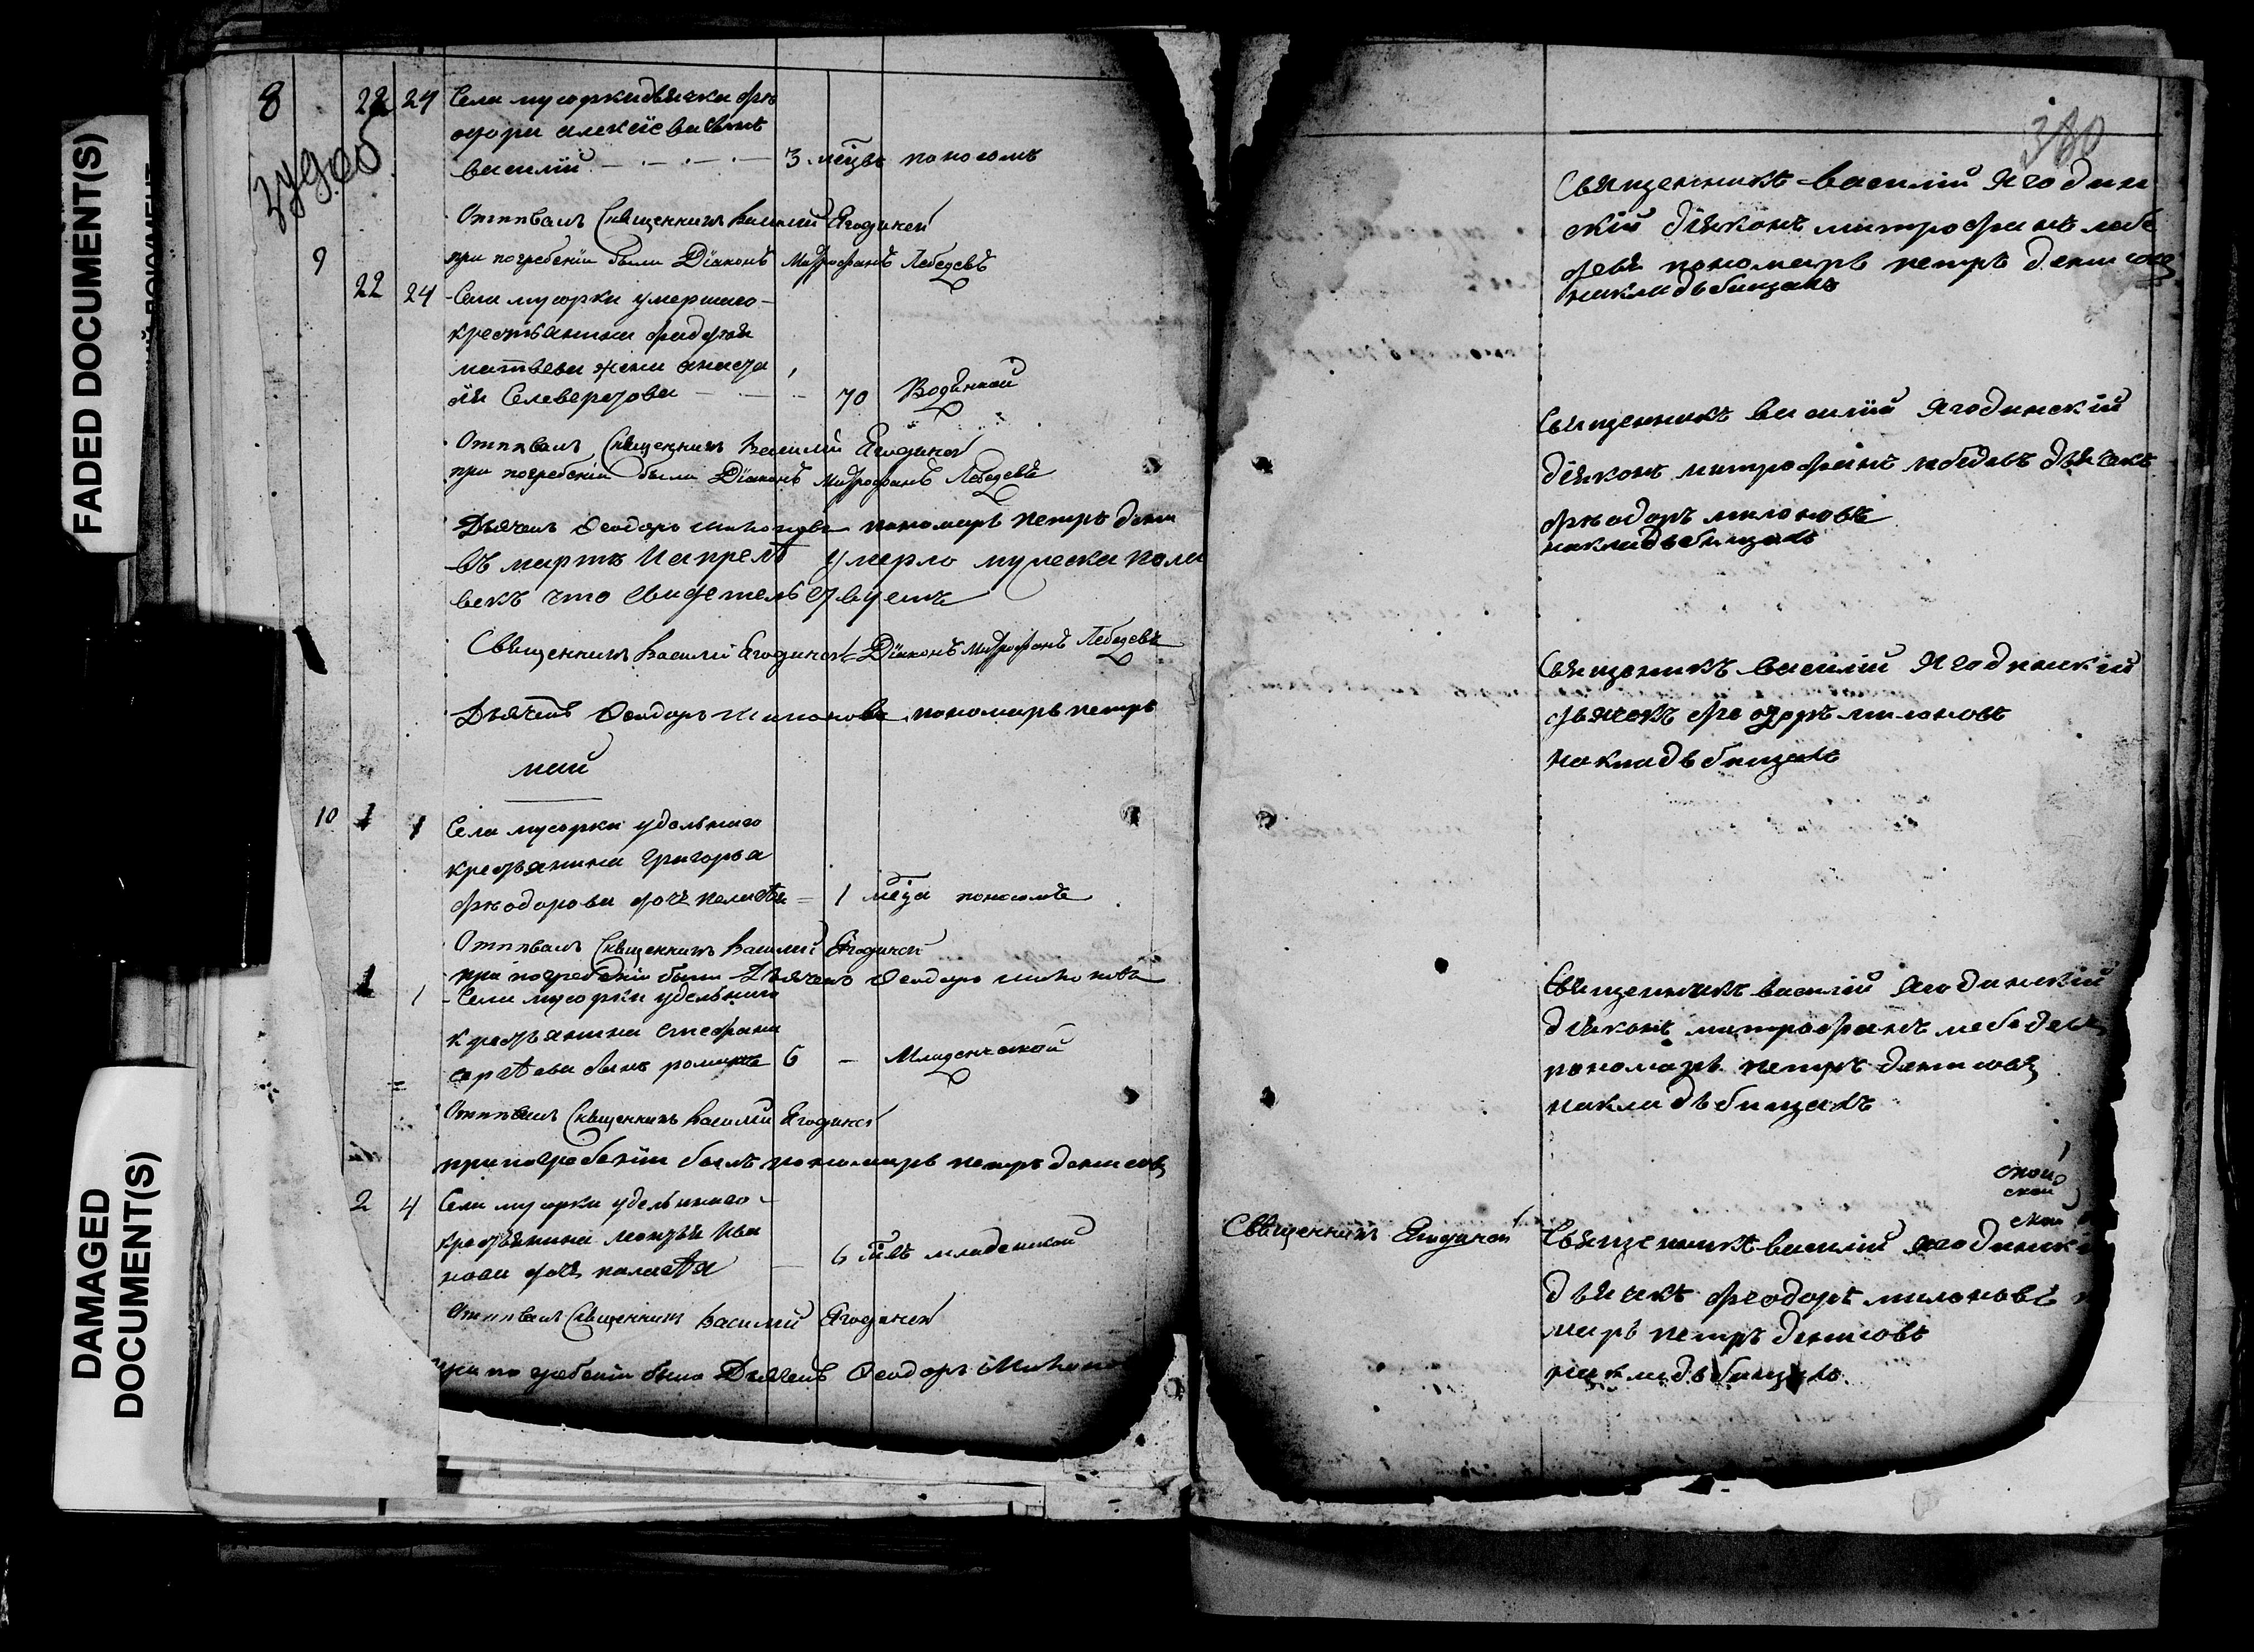 FADED DOCUMENT(S)
DAMAGED
DOCUMENT(S)
8 22 24 Села мусорки дьячка фѣ
одора алексіева сынъ
василій 3 мѣцвъ поносомъ
Отпѣвалъ Священникъ Василій Ягодинскій
9 при погребеніи были Діаконъ Митрофанъ Лебедевъ
22 24 Села мусорки умершаго
крестьянина
матвева жена анаста
сія Селеверстова 70 Водянкой
Отпѣвалъ Священникъ Василій Ягодинскій
при погребеніи были Діаконъ Митрофанъ Лебедевъ
Дьячекъ Феодоръ Милоновъ пономарь петръ дени
въ мартѣ и апрелѣ умерло мужеска пола
векъ что свидетельствуемъ
Священникъ Василій Ягодинскій Діаконъ Митрофанъ Лебедевъ
Дьячекъ Феодоръ Милоновъ пономарь петръ
маи
10 1 1 Села мусорки удельнаго
крестьянина Григорья
фѣодорова дочь пелагѣя 1 мѣца поносомъ
Отпѣвалъ Священникъ Василій Ягодинскій
при погребеніи были Дьячекъ Феодоръ Милоновъ
1 1 Села мусорки удельнаго
крестьянина стефана
сергѣева сынъ романъ 6 Младенческой
Отпѣвалъ Священникъ Василій Ягодинскій
при погребеніи былъ пономарь петръ денисовъ
2 4 Села мусорки удельнаго
крестьянина Ива
нова дочь палагѣя 6 младенской
Отпѣвалъ Священникъ Василій Ягодинскій
при погребеніи были Дьячекъ Феодоръ Милоно
380
Священникъ василій Ягодин
скій діяконъ митрофанъ лебе
девъ пономарь петръ денисовъ
накладъбищахъ
Священникъ василій Ягодинскій
діяконъ митрофанъ лебедевъ дьячекъ
фѣодоръ милоновъ
накладъбищахъ
Священикъ василій Ягодинский
дьячекъ феодоръ милоновъ
накладъбищахъ
Священникъ василій Ягодинскій
діяконъ митрофанъ лебедевъ
пономарь петръ денисовъ
накладъбищахъ
ской
ской
ской
Священникъ Ягодинскій
Священникъ василій ягодинскі
дьячекъ феодоръ милоновъ
марь петръ денисовъ
накладъбищахъ